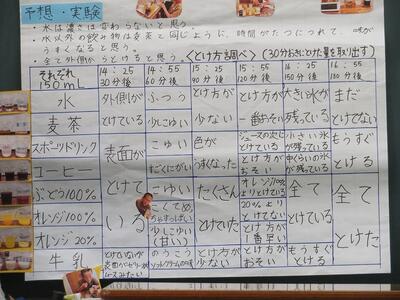 予想・実験
・水は濃さは変わらないと思う。
・水以外の飲み物は麦茶と同じように、時間がたつにつれて、味が
うすくなると思う。
・全て外側からとけると思う。
<とけ方調べ>(30分おきにとけた量を取り出す)
それぞれ
150mL
14:25
30分後
14:55
60分後
15:25
90分後
15:55
120分後
16:25
150分後
16:55
180分後
水
外側が
ふつう
とけ方が
とけ方が
大きい氷が
まだ
麦茶
とけている
少しこゆい
少ない
一番おそい
残っている
とけてない
スポーツドリンク
表面が
こゆい
色が
ジュースの次に
とけている
小さい氷が
残っている
もうすぐ
コーヒー
すごくにがい
うすくなった
とけ方が
おそい
中くらいの氷が
残っている
とける
ぶどう100%
とけて
こゆい
たくさん
オレンジ20%より
とけている
全て
全て
オレンジ100%
いる
こくてあまずっぱい
とけていた
20%より
とけてない
とけている
とけた
オレンジ20%
少しこゆい
(甘い)
とけ方が
少ない
とけ方が
一番早い
牛乳
とけていないが
表面がゼリー状
のうこう
ソフトクリームの味
とけ方が
少ない
とけ方が
おそい
もうすぐ
とける